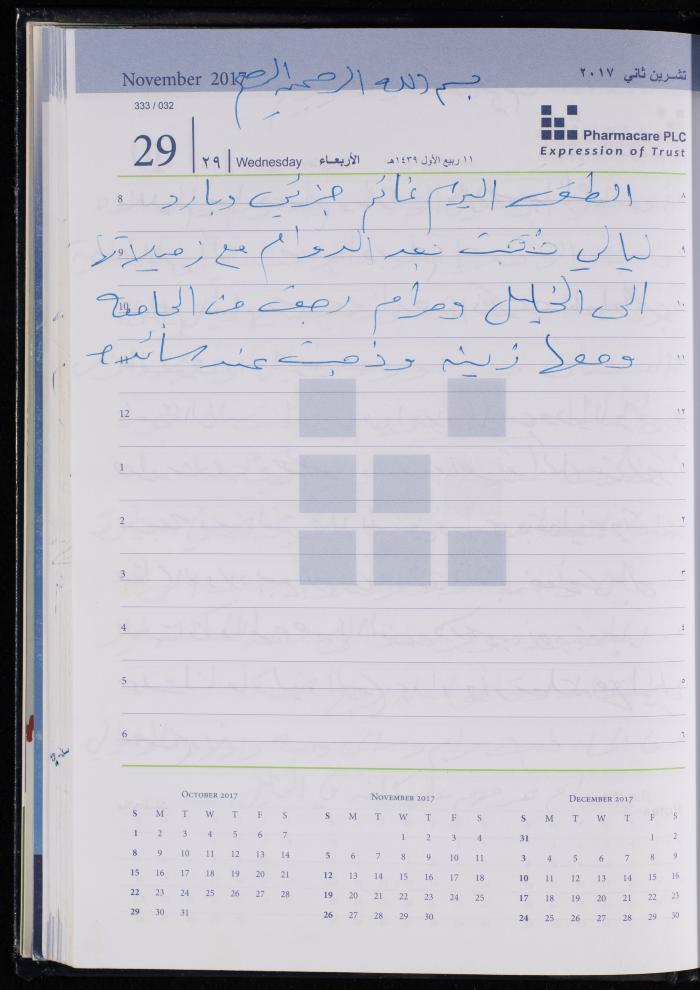 November 2017 بسم الله الرحمن الرحيم تشرين ثاني ٢٠١٧
333 / 032
29 ٢٩ Wednesday الأربعاء ١١ ربيع الأول ١٤٣٩هـ
Pharmacare PLC
Expression of Trust
8 الطقس اليوم غائم جزئي وبارد ٨
9 ليالي ذهبت بعد الدوام مع زميلاتها ٩
10 الى الخليل ومرام رجعت من الجامعة ١٠
11 ومعها زينه وذهبت عند ١١
12 ١٢
1 ١
2 ٢
3 ٣
4 ٤
5 ٥
6 ٦
October 2017
S M T W T F S
1 2 3 4 5 6 7
8 9 10 11 12 13 14
15 16 17 18 19 20 21
22 23 24 25 26 27 28
29 30 31
November 2017
S M T W T F S
1 2 3 4
5 6 7 8 9 10 11
12 13 14 15 16 17 18
19 20 21 22 23 24 25
26 27 28 29 30
December 2017
S M T W T F S
31 1 2
3 4 5 6 7 8 9
10 11 12 13 14 15 16
17 18 19 20 21 22 23
24 25 26 27 28 29 30